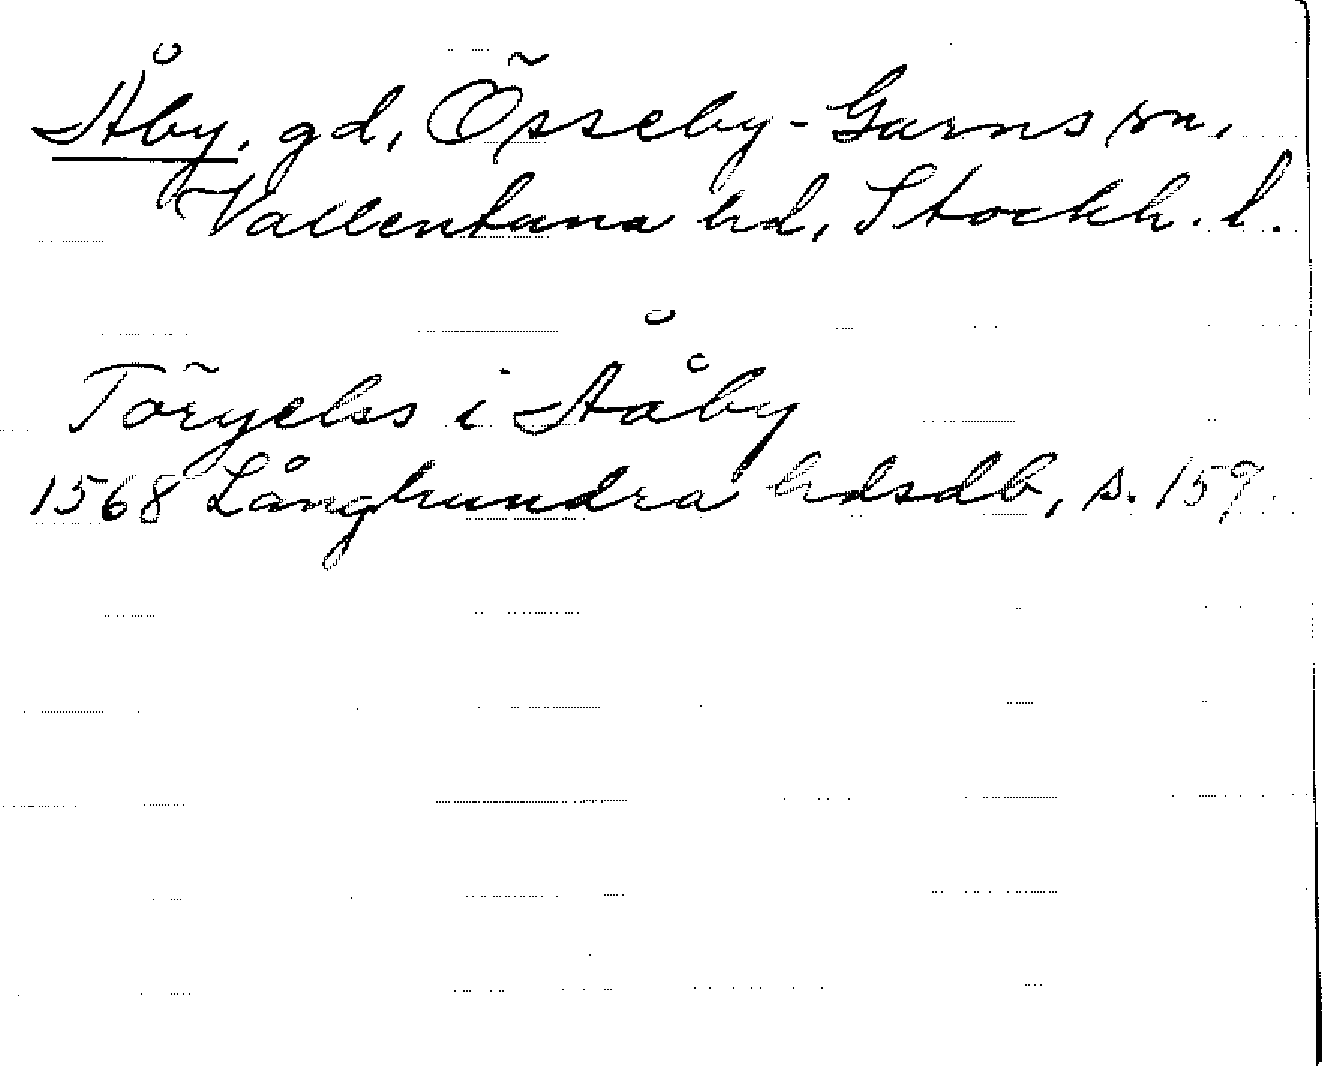 Åby, gd, Össeby-Garns sn,
Vallentuna hd, Stockh. l.
Töryels i Åå̊by
1568 Långhundra hdsdb, s. 159.